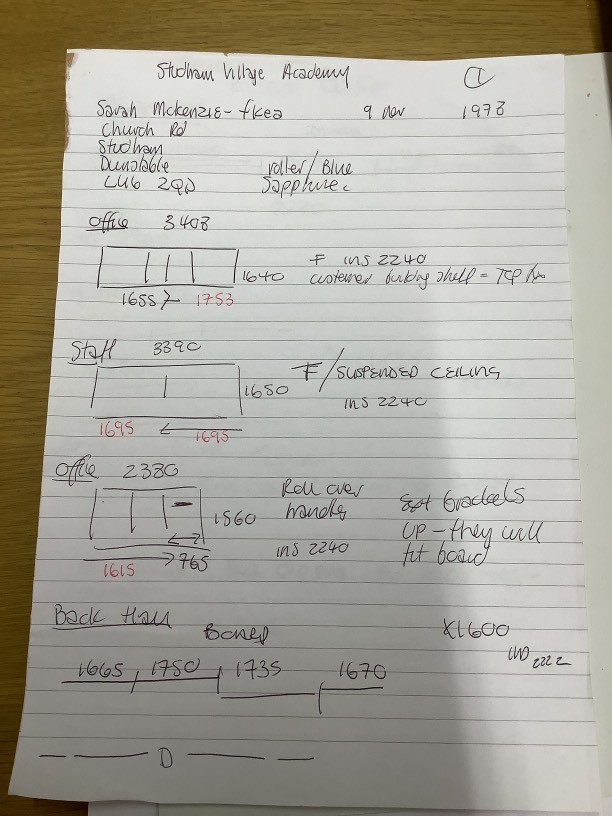 Studham Village Academy 1
Sarah McKenzie - 9 Nov 1978
Church Rd
Studham
Dunstable roller/Blue
LU6 2QD Sapphire
Office 3408
F ins 2240
1640 customer building shelf = Top
1655 1753
Staff 3390
F/SUSPENDED CEILING
1680
ins 2240
1695 1695
Office 2380
Roll over Ext brackets
1560 handles UP - they will
ins 2240 fit board
1615 765
Back Hall X1600
Boxed
ins 2222
1665, 1750 1735 1670
D